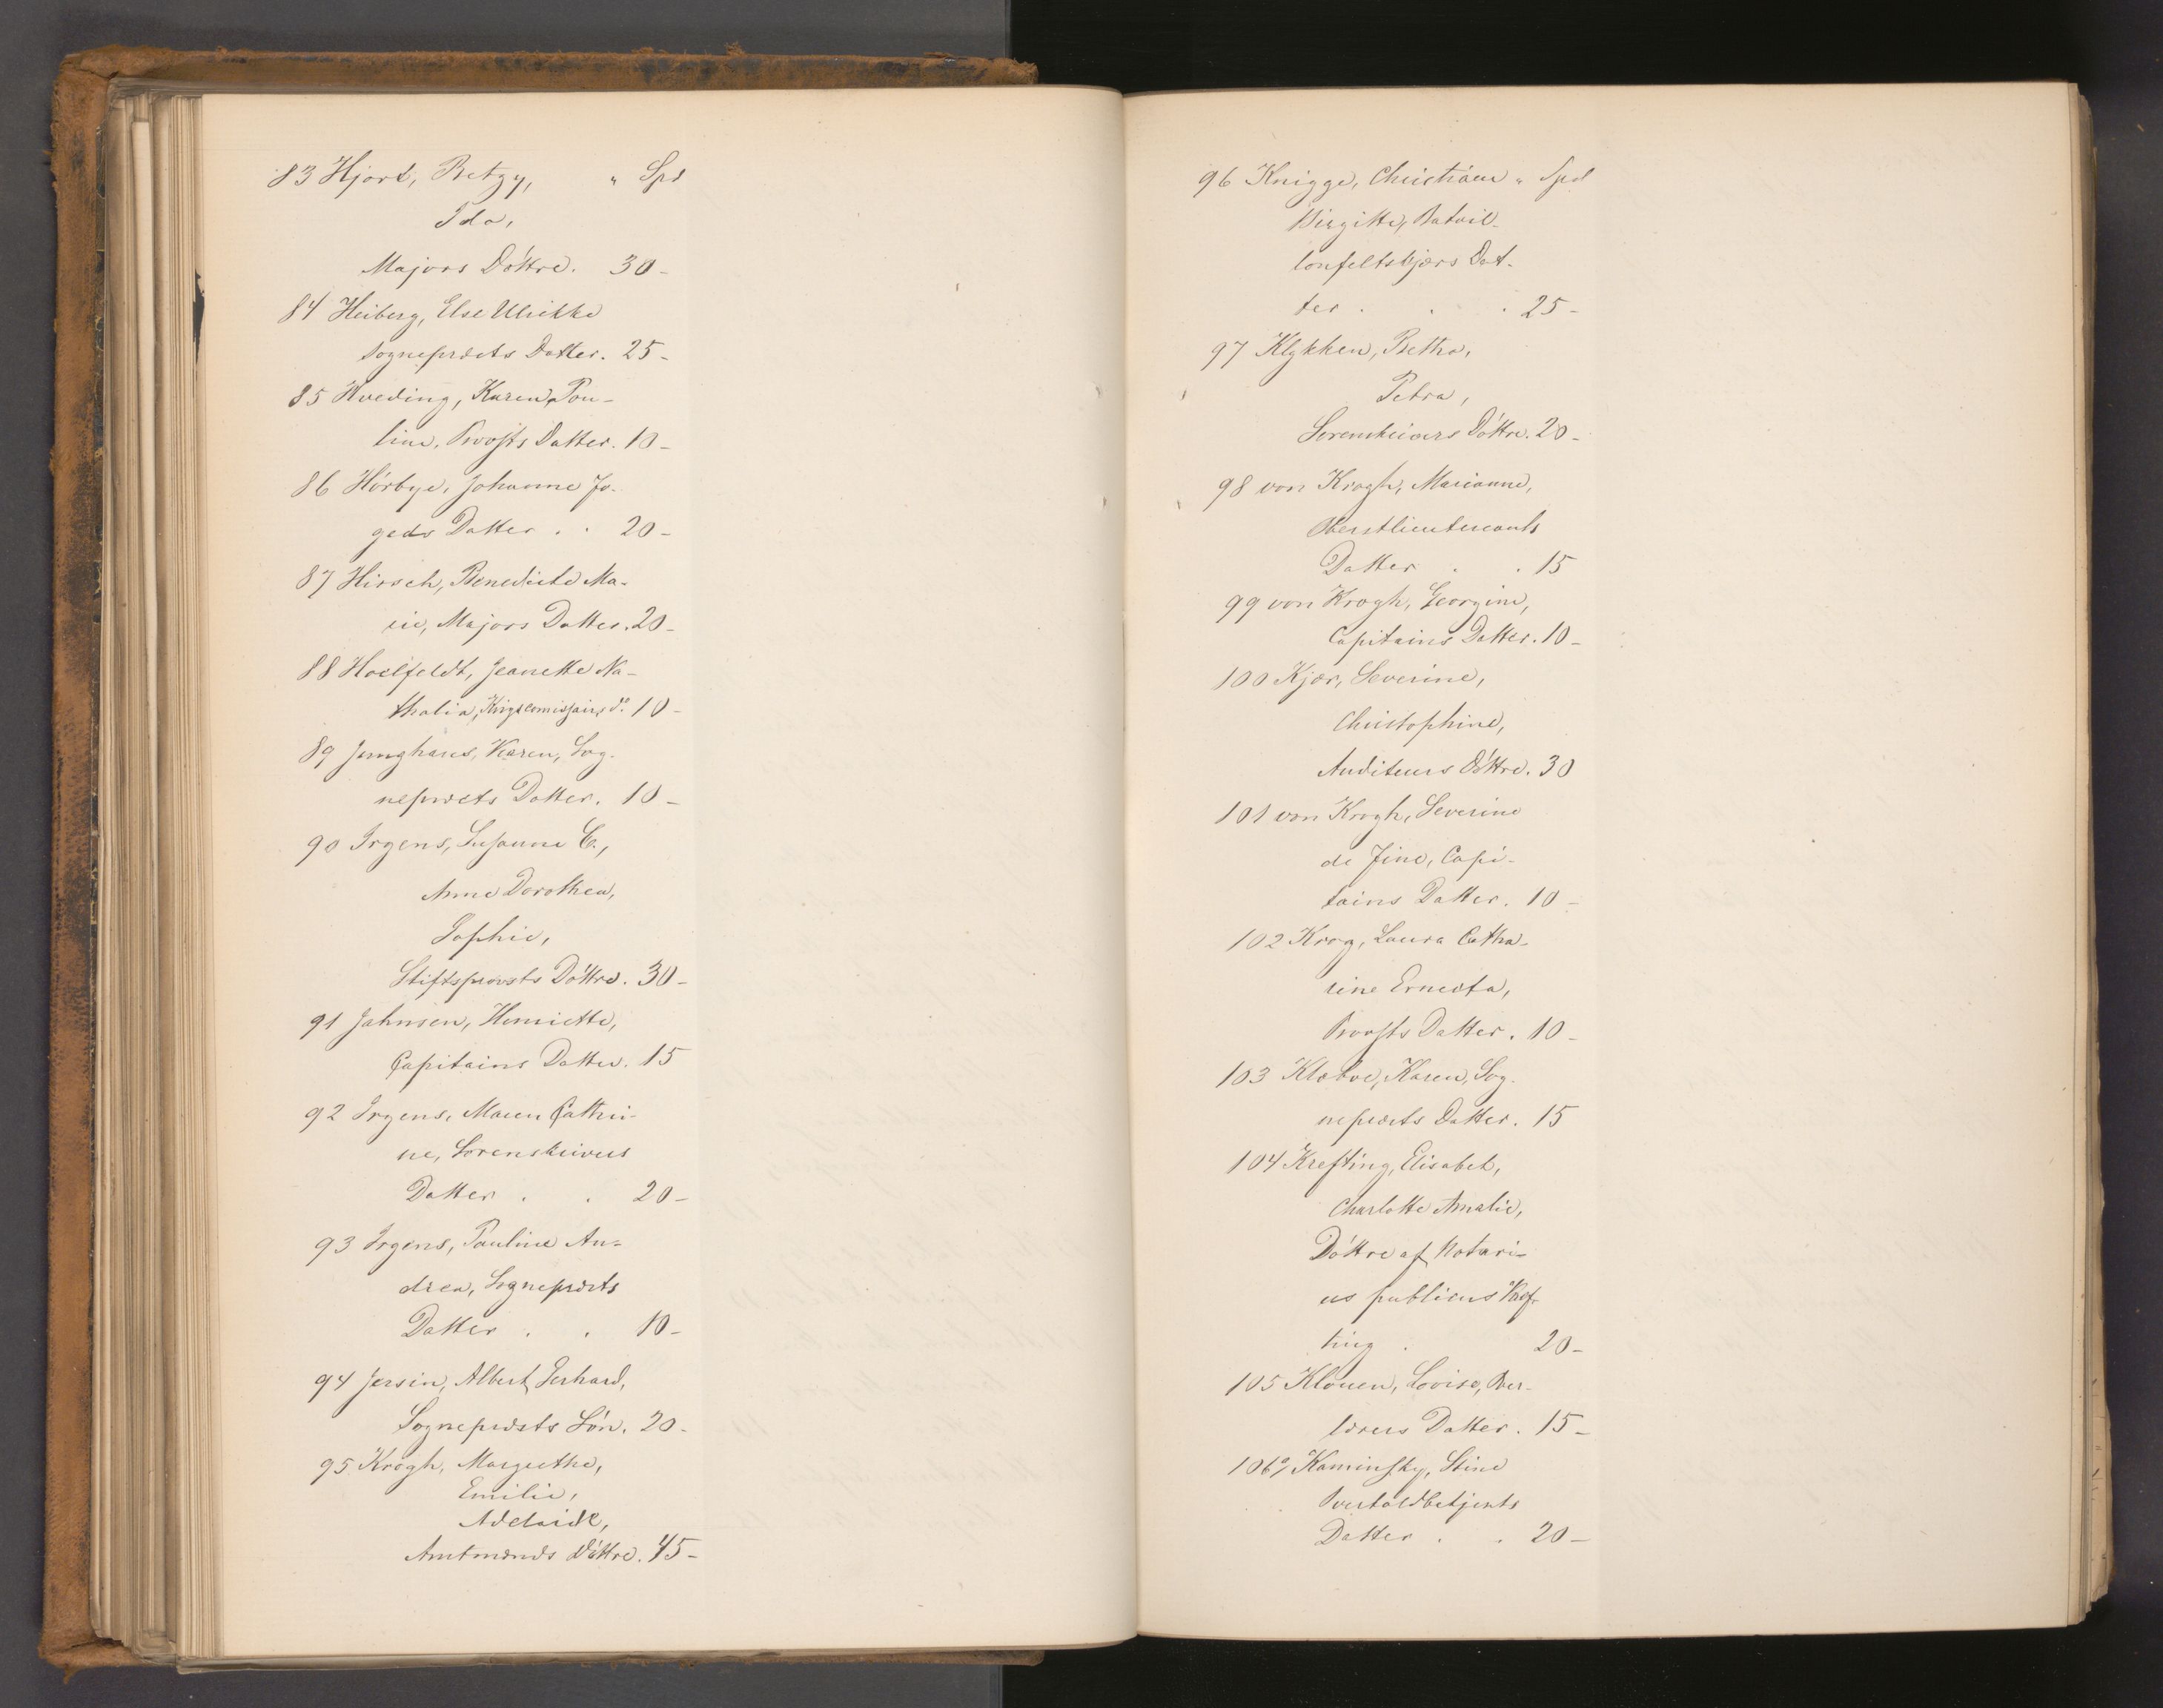 83 Hjort, Betzy, " Spd
Ida,
Majors Döttre. 30-
84 Heiberg, Else Ulrikke
Sogneprests Datter. 25-
85 Hveding, Karen Pou-
line, Provsts Datter. 10-
86 Hörbye, Johanne Fo-
geds Datter . . 20-
87 Hirsch, Benedicte Ma-
rie, Majors Datter. 20-
88 Hoelfeldt, Jeanette Na-
thalia, Krigscomissairs d. 10-
89 Junghans, Karen, Sog-
neprests Datter. 10-
90 Irgens, Susanne C.,
Anne Dorothea,
Sophie,
Stiftsprovsts Döttre. 30-
91 Jahnsen, Henriette,
Capitains Datter. 15
92 Irgens, Maren Cathri-
ne, Sorenskrivers
Datter . . 20-
93 Irgens, Pauline An-
drea, Sogneprests
Datter . . 10-
94 Jersin, Albert Gerhard,
Sogneprests Sön. 20-
95 Krogh, Margrethe,
Emilie,
Adelaide,
Amtmands Döttre. 45-
96 Knigge, Christiane " Spd
Birgitte, Batail-
lonfeltskjers Dat-
ter . . . 25-
97 Klykken, Betha,
Petra,
Sorenskrivers Döttre. 20-
98 von Krogh, Marianne,
Oberstlieutenants
Datter . . 15
99 von Krogh, Georgine,
Capitains Datter. 10-
100 Kjær, Severine,
Christophine,
Auditeurs Döttre. 30
101 von Krogh, Severine
de Fine, Capi-
tains Datter. 10-
102 Krog, Laura Catha-
rine Ernesta,
Provsts Datter. 10-
103 Klæboe, Karen, Sog-
neprests Datter. 15
104 Krefting, Elisabet,
Charlotte Amalie,
Döttre af Notari-
us publicus Kref-
ting . 20-
105 Klouen, Lovise, Over-
lærers Datter. 15-
106 a/ Kaminsky, Stine
Overtoldbetjents
Datter . . 20-